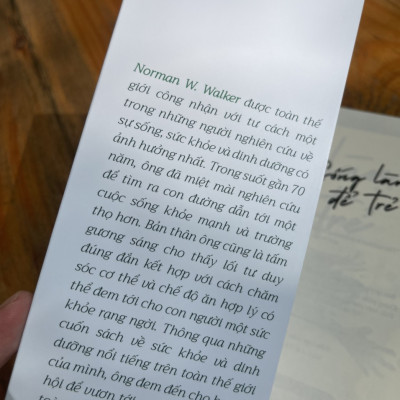 Norman W. Walker được toàn thế
giới công nhận với tư cách một
trong những người nghiên cứu về
sự sống, sức khỏe và dinh dưỡng có
ảnh hưởng nhất. Trong suốt gần 70
năm, ông đã miệt mài nghiên cứu
để tìm ra con đường dẫn tới một
cuộc sống khỏe mạnh và trường
thọ hơn. Bản thân ông cũng là tấm
gương sáng cho thấy lối tư duy
đúng đắn kết hợp với cách chăm
sóc cơ thể và chế độ ăn hợp lý có
thể đem tới cho con người một sức
khỏe rạng ngời. Thông qua những
cuốn sách về sức khỏe và dinh
dưỡng nổi tiếng trên toàn thế giới
của mình, ông đem đến cho
hội để vươn tới
để trẻ